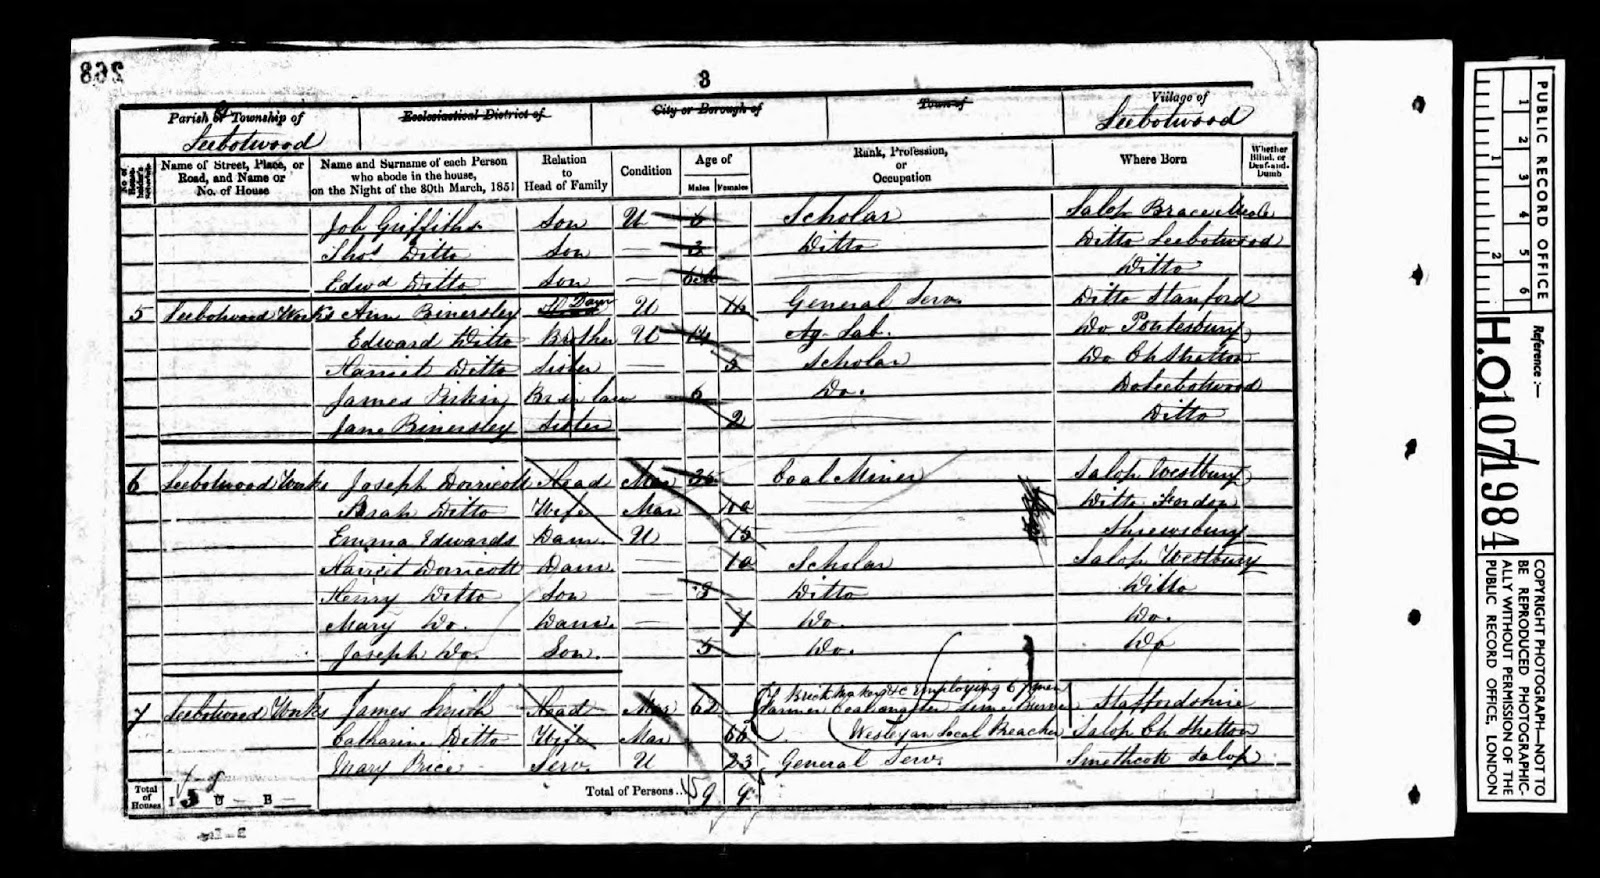 268
3
Parish or Township of
Leebotwood
Ecclesiastical District of
City or Borough of
Town of
Village of
Leebotwood
Name of Street, Place, or Road, and Name or No. of House
Name and Surname of each Person who abode in the house, on the Night of the 30th March, 1851
Relation to Head of Family
Condition
Age of
Males Females
Rank, Profession, or Occupation
Where Born
Whether Blind, or Deaf-and-Dumb
Job Griffiths Son U 6 Scholar Salop Brace Meole
Thos Ditto Son 3 Ditto Ditto Leebotwood
Edwd Ditto Son Ditto
5 Leebotwood Works Ann Binersley Daur U 16 General Serv. Ditto Stanford
Edward Ditto Brother U 14 Ag. Lab. Do Pontesbury
Harriet Ditto Sister 5 Scholar Do Ch Stretton
James Br in law 6 Do. Do Leebotwood
Jane Binersley Sister 2 Ditto
6 Leebotwood Works Joseph Dorricott Head Mar 36 Coal Miner Salop Westbury
Sarah Ditto Wife Mar 40 Ditto Forden
Emma Edwards Daur. U 15 Shrewsbury
Harriet Dorricott Daur 10 Scholar Salop Westbury
Henry Ditto Son 8 Ditto Ditto
Mary Do. Daur. 7 Do. Do.
Joseph Do. Son. 5 Do. Do
7 Leebotwood Works James Smith Head Mar 62 Brick Maker &c Employing 67 men Staffordshire
Farmer Coalmaster Lime Burner
Catharine Ditto Wife Mar 66 Wesleyan Local Preacher Salop Ch Stretton
Mary Price Serv. U 23 General Serv. Smethcott Salop
Total of Houses I 3 U — B —
Total of Persons... 9 9
PUBLIC RECORD OFFICE
1 2 3 4 5 6
1 2
Reference:—
H.O.107/1984
COPYRIGHT PHOTOGRAPH—NOT TO
BE REPRODUCED PHOTOGRAPHIC-
ALLY WITHOUT PERMISSION OF THE
PUBLIC RECORD OFFICE, LONDON